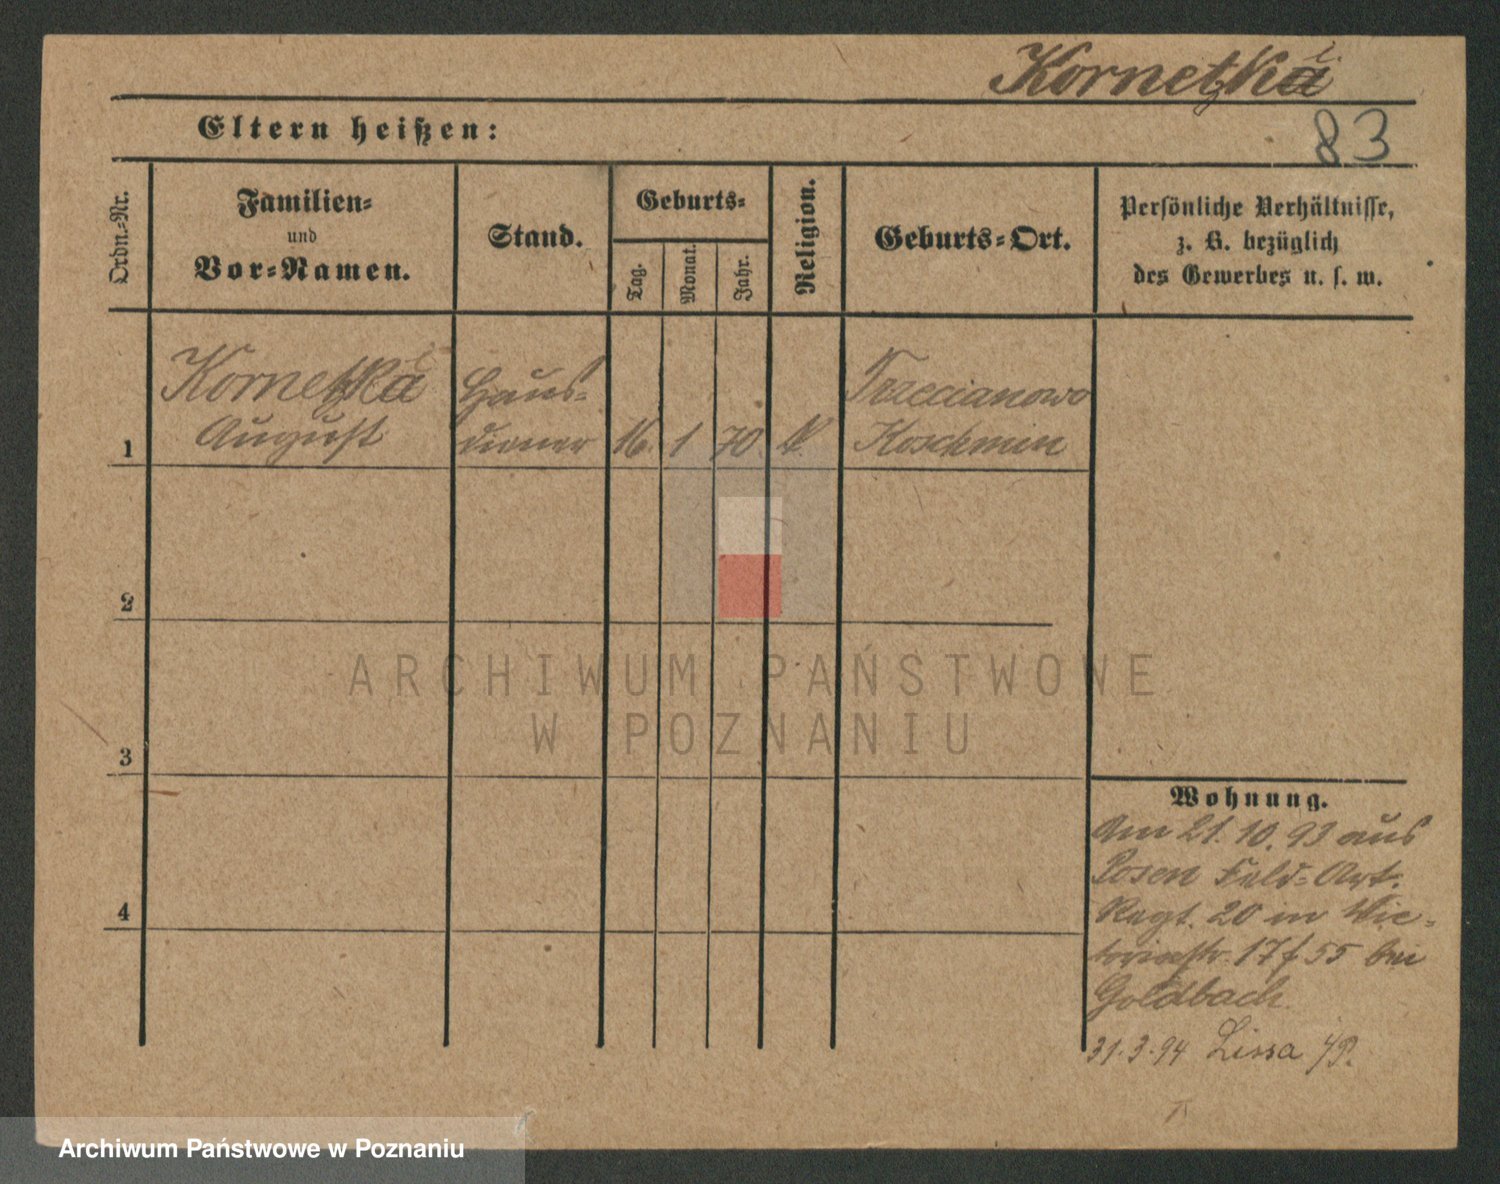 Kornetzki
83
Eltern heißen:
Ordn.-Nr.
Familien-
und
Vor-Namen.
Stand.
Geburts-
Tag.
Monat.
Jahr.
Religion.
Geburts-Ort.
Persönliche Verhältnisse,
z. B. bezüglich
des Gewerbes u. s. w.
Kornetzki
August
Haus-
diener
16.
1
70.
Trzecianowo
Koschmin
1
2
3
4
ARCHIWUM PAŃSTWOWE
W POZNANIU
Wohnung.
Am 21.10.93 aus
Posen Feld-Art.
Regt. 20 in Vic-
toriastr. 17 f 55 bei
Goldbach.
31.3.94 Lissa
Archiwum Państwowe w Poznaniu